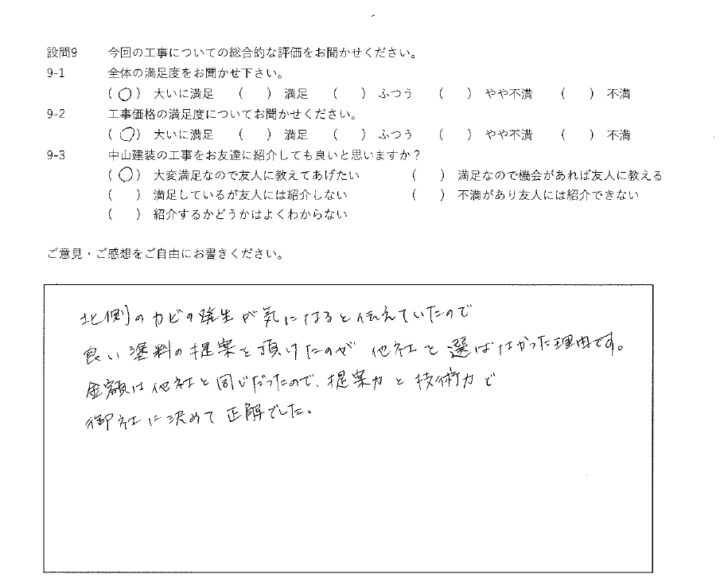 設問9 今回の工事についての総合的な評価をお聞かせください。
9-1 全体の満足度をお聞かせ下さい。
(○) 大いに満足 ( ) 満足 ( ) ふつう ( ) やや不満 ( ) 不満
9-2 工事価格の満足度についてお聞かせください。
(○) 大いに満足 ( ) 満足 ( ) ふつう ( ) やや不満 ( ) 不満
9-3 中山建装の工事をお友達に紹介しても良いと思いますか？
(○) 大変満足なので友人に教えてあげたい ( ) 満足なので機会があれば友人に教える
( ) 満足しているが友人には紹介しない ( ) 不満があり友人には紹介できない
( ) 紹介するかどうかはよくわからない
ご意見・ご感想をご自由にお書きください。
北側のカビの発生が気になると伝えていたので
良い塗料の提案を頂けたのが 他社を選ばなかった理由です。
金額は他社と同じだったので、提案力と技術力で
御社に決めて正解でした。